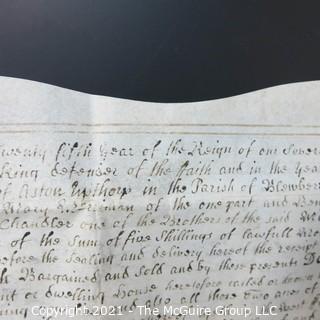 twenty fifth Year of the Reign of our Sover
King defender of the Faith and in the Year
of Aston Upthorp in the Parish of Blewberr
Mary Merriman of the one part and Ben
Chandler one of the Brothers of the said
of the Sum of five Shillings of lawfull
before the Sealing and delivery hereof the receipt
Bargained and Sold and by these presents
or dwelling house heretofore called or
all those two acres of
Copyright 2021 - The McGuire Group LLC